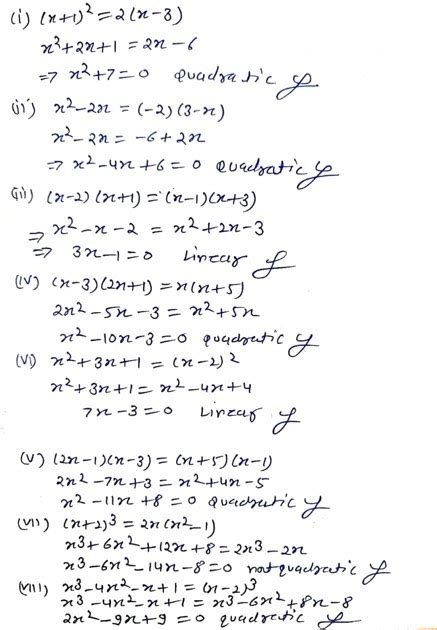 (i) (x+1)² = 2(x-3)
x²+2x+1 = 2x-6
=> x²+7=0 quadratic
(ii) x²-2x = (-2)(3-x)
x²-2x = -6+2x
=> x²-4x+6=0 quadratic
(iii) (x-2)(x+1) = (x-1)(x+3)
=> x²-x-2 = x²+2x-3
=> 3x-1=0 Linear
(iv) (x-3)(2x+1) = x(x+5)
2x²-5x-3 = x²+5x
x²-10x-3=0 quadratic
(vi) x²+3x+1 = (x-2)²
x²+3x+1 = x²-4x+4
7x-3=0 Linear
(v) (2x-1)(x-3) = (x+5)(x-1)
2x²-7x+3 = x²+4x-5
x²-11x+8=0 quadratic
(vii) (x+2)³ = 2x(x²-1)
x³+6x²+12x+8 = 2x³-2x
x³-6x²-14x-8=0 not quadratic
(viii) x³-4x²-x+1 = (x-2)³
x³-4x²-x+1 = x³-6x²+8x-8
2x²-9x+9=0 quadratic